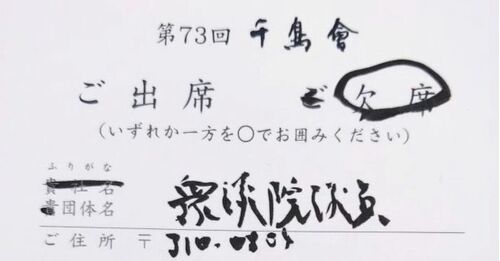 第73回 千鳥會
ご出席 ご欠席
(いずれか一方を○でお囲みください)
ふりがな
貴社名
貴団体名 衆議院議員
ご住所 〒310-0805